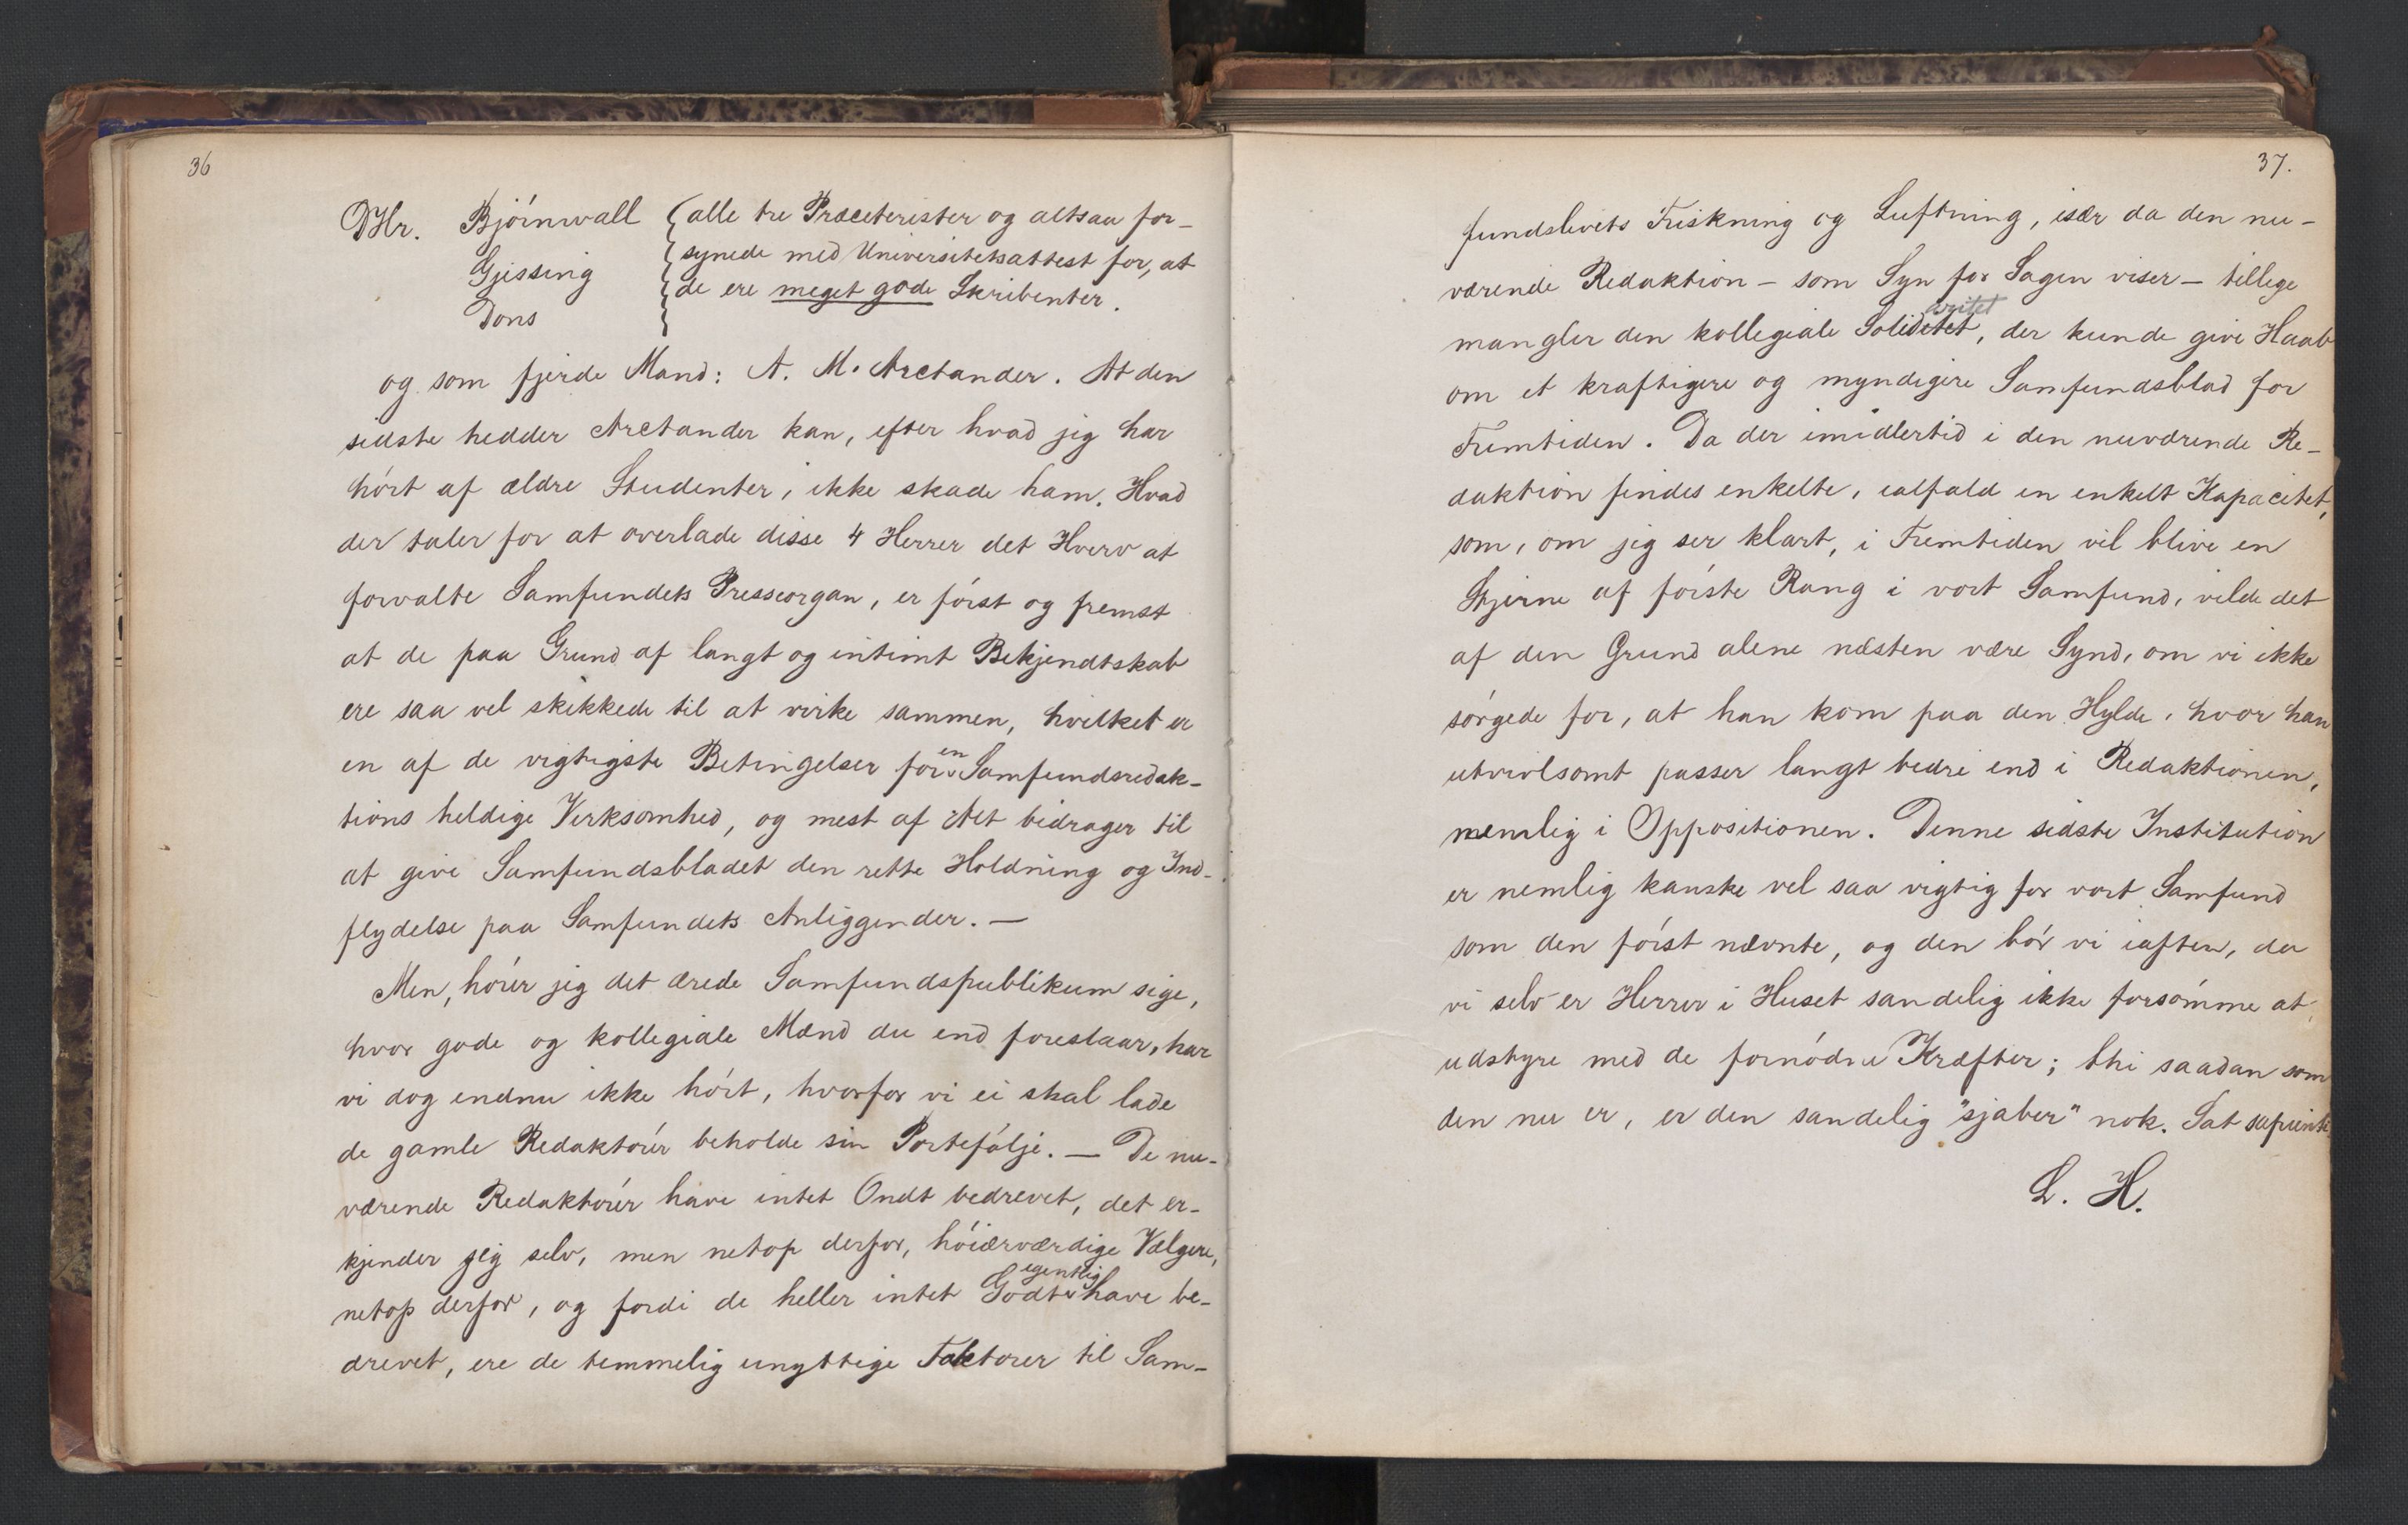 36
DHr. Bjørnwall { alle tre Præceterister og altsaa for-
Gjessing { synede med Universitetsattest for, at
Dons { de ere meget gode Skribenter.
og som fjerde Mand: A. M. Arctander. At den
sidste hedder Arctander kan, efter hvad jeg har
hørt af ældre Studenter, ikke skade ham. Hvad
der taler for at overlade disse 4 Herrer det Hverv at
forvalte Samfundets Presseorgan, er først og fremst
at de paa Grund af langt og intimt Bekjendtskab
ere saa vel skikkede til at virke sammen, hvilket er
en af de vigtigste Betingelser for en Samfundsredak-
tions heldige Virksomhed, og mest af Alt bidrager til
at give Samfundsbladet den rette Holdning og Ind-
flydelse paa Samfundets Anliggender. —
Men, hører jeg det ærede Samfundspublikum sige,
hvor gode og kollegiale Mænd du end foreslaar, har
vi dog endnu ikke hørt, hvorfor vi ei skal lade
de gamle Redaktører beholde sin Portefølje. — De nu-
værende Redaktører have intet Ondt bedrevet, det er-
kjender jeg selv, men netop derfor, høiærværdige Vælgere,
netop derfor, og fordi de heller intet Godt egentlig have be-
drevet, ere de temmelig unyttige Faktorer til Sam-
37.
fundslivets Friskning og Luftning, især da den nu-
værende Redaktion – som Syn for Sagen viser – tillige
mangler den kollegiale Soliditet aritet, der kunde give Haab
om et kraftigere og myndigere Samfundsblad for
Fremtiden. Da der imidlertid i den nuværende Re-
daktion findes enkelte, ialfald en enkelt Kapacitet,
som, om jeg ser klart, i Fremtiden vil blive en
Stjerne af første Rang i vort Samfund, vilde det
af den Grund alene næsten være Synd, om vi ikke
sørgede for, at han kom paa den Hylde, hvor han
utvivlsomt passer langt bedre end i Redaktionen,
nemlig i Oppositionen. Denne sidste Institution
er nemlig kanske vel saa vigtig for vort Samfund
som den først nævnte, og den bør vi iaften, da
vi selv er Herrer i Huset sandelig ikke forsømme at
udstyre med de fornødne Kræfter; thi saadan som
den nu er, er den sandelig "sjaber" nok. Sat sapienti
L. H.